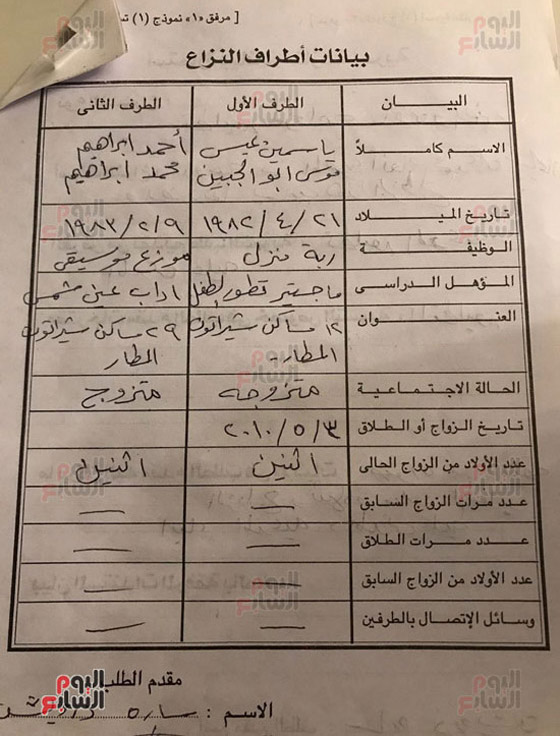 [ مرفق «١» نموذج (١)
بيانات أطراف النزاع
البيان الطرف الأول الطرف الثانى
الاسم كاملاً ياسمين عيسى أحمد ابراهيم
موسى ابو الجبين محمد ابراهيم
تاريخ الميلاد ٢١ / ٤ / ١٩٨٢ ٩ / ٢ / ١٩٨٣
الوظيفة ربة منزل موزع موسيقى
المؤهل الدراسى ماجستير تطور الطفل اداب عين شمس
العنوان ١٢ مساكن شيراتون ٢٩ مساكن شيراتون
المطار المطار
الحالة الاجتماعية متزوجه متزوج
تاريخ الزواج أو الطلاق ٣ / ٥ / ٢٠١٠
عدد الأولاد من الزواج الحالى اثنين اثنين
عدد مرات الزواج السابق — —
عدد مرات الطلاق — —
عدد الأولاد من الزواج السابق — —
وسائل الإتصال بالطرفين — —
مقدم الطلب
الاسم : ساره
اليوم السابع